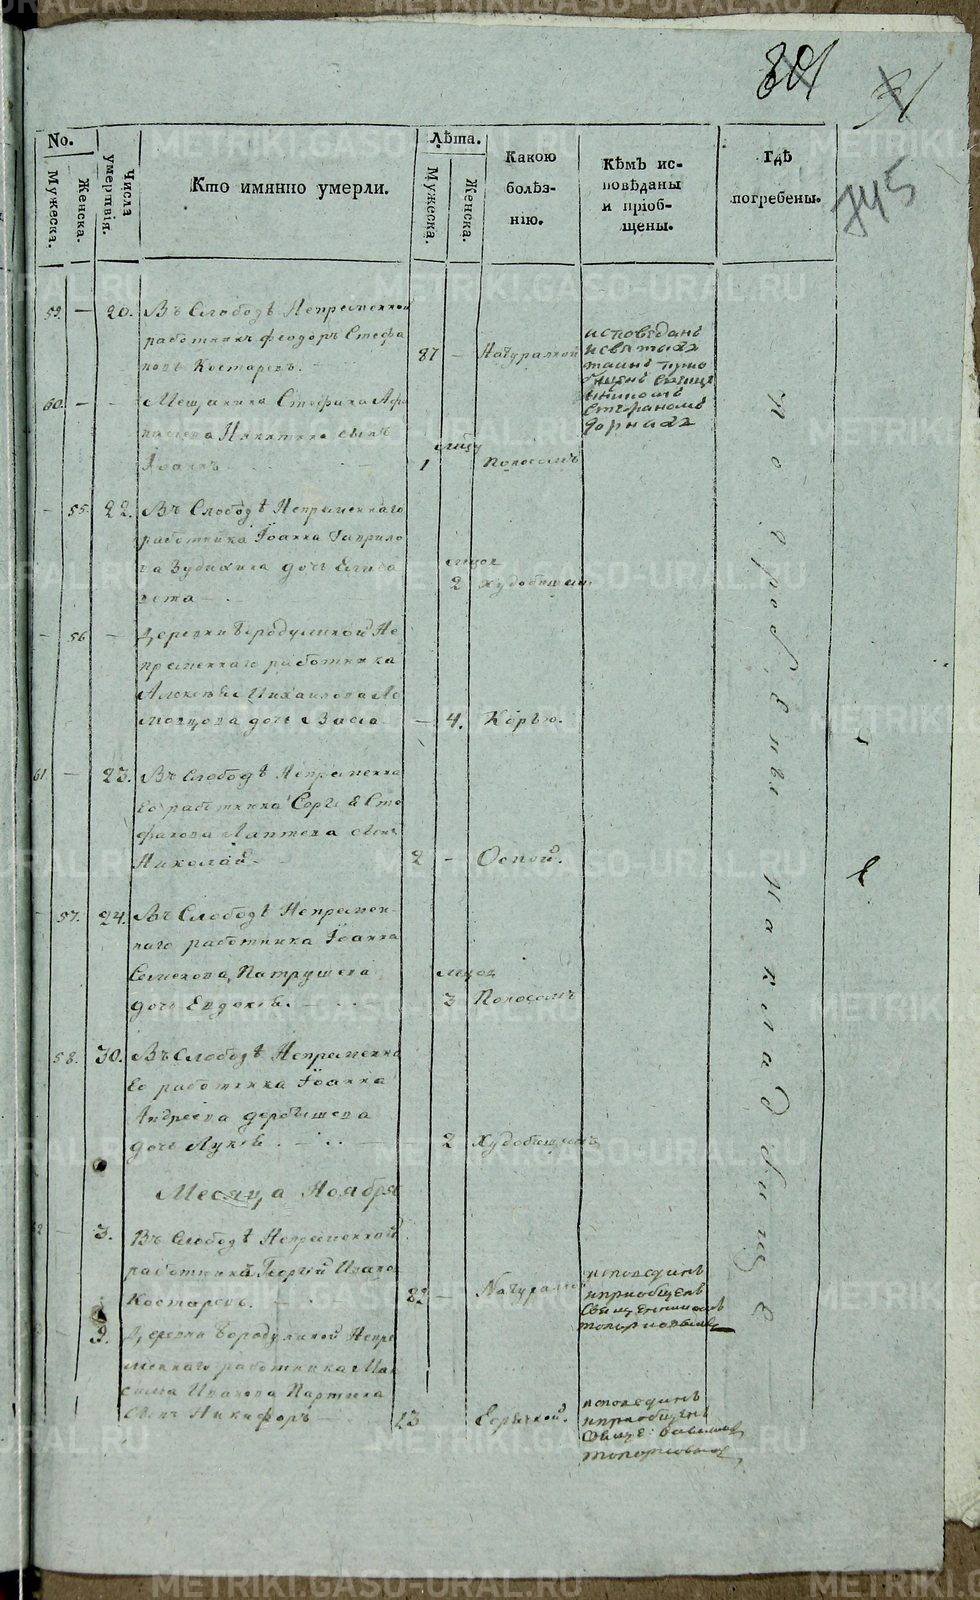 801
745
No.
Мужеска.
Женска.
Числа умертвія.
Кто имянно умерли.
Лѣта.
Мужеска.
Женска.
Какою
болѣз-
нію.
Кѣмъ ис-
повѣданы
и пріоб-
щены.
Гдѣ
погребены.
59. — 20. Въ Слободѣ Непременной
работникъ Феодоръ Стефа
новъ Костаревъ. 87 — Натуралной
исповѣданъ
и святыхъ
таинъ
60. — — Мещанина Стефана Афа
насьева Никитина сынъ
Іоаннъ 1 Поносомъ
— 55. 22. Въ Слободѣ Непременнаго
работника Іоанна Гаврило
ва Зубихина дочь Елиса
вета — 2
— 56 — Деревни Бородулиной Не
пременнаго работника
Алексѣя Михаилова
дочь Васса — 4. Корью.
61. — 23. Въ Слободѣ Непременна
го работника Сергѣя Сте
фанова Лаптева сынъ
Николай — 2 — Оспой.
— 57. 24. Въ Слободѣ Непремен-
наго работника Іоанна
Семенова Патрушева
дочь Евдокія. 3 Поносомъ
58. 30. Въ Слободѣ Непременна
го работника Іоанна
Андреева Дербышева
дочь 2
Месяца Ноября
62 — 3. Въ Слободѣ Непременной
работникъ Георгій Ивановъ
Костаревъ. — 82 — Натуралной
исповеданъ
и приобщенъ
Священникомъ
9. Деревни Бородулиной Непре
меннаго работника Мак
сима Иванова
сынъ Никифоръ — 23 Горячкой.
исповеданъ
и приобщенъ
погребены на кладбище
METRIKI.GASO-URAL.RU